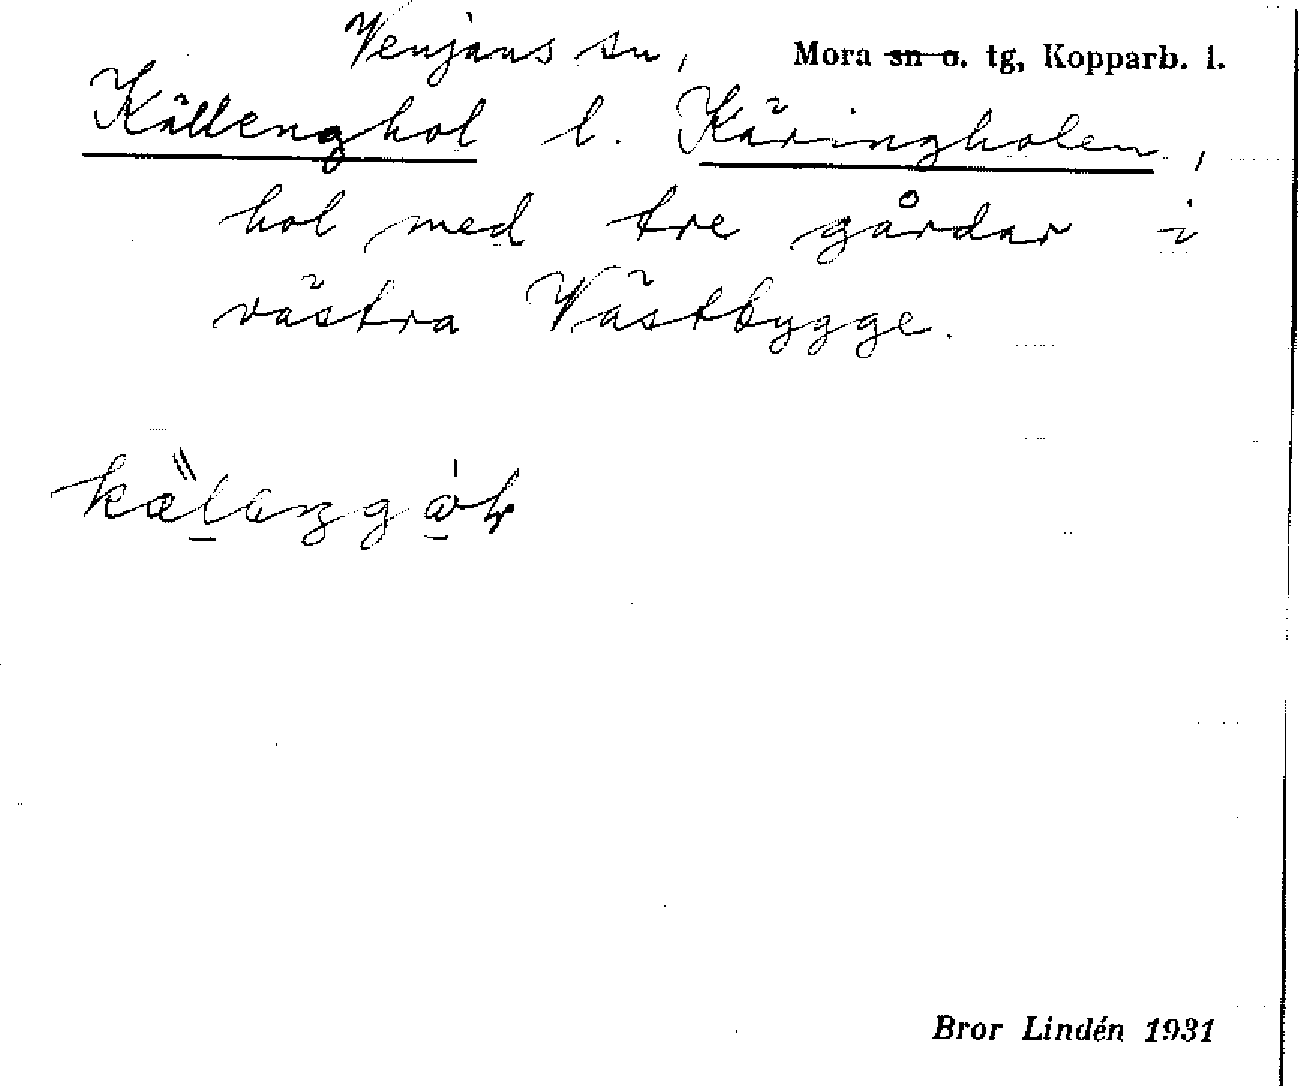 Venjans sn, Mora sn o. tg, Kopparb. l.
Källenghol l. Käringholen,
hol med tre gårdar i
västra Västbygge.
Bror Lindén 1931